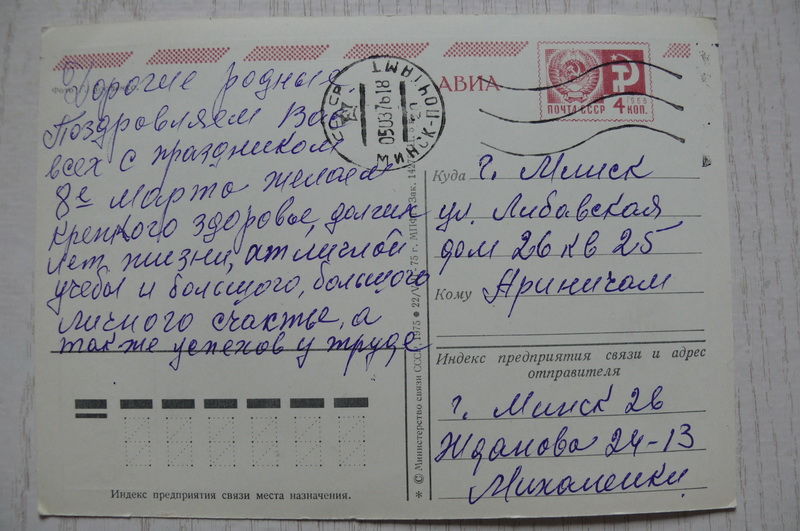 Дорогие родные
Поздровляем Вас
всех с праздником
8е марта желаем
крепкого здоровье, долгих
лет жизни, атличной
учебы и большого, большого
личного счастье, а
также успехов у труде
Индекс предприятия связи места назначения.
АВИА
СССР
МИНСК-ПОЧТАМТ
050376 18
ПОЧТА СССР
1966
4 КОП.
© Министерство связи СССР, 1975
Куда г. Минск
ул. Либавская
дом 26 кв 25
Кому Ариничам
Индекс предприятия связи и адрес
отправителя
г. Минск 26
Жданова 24-13
Михаленки